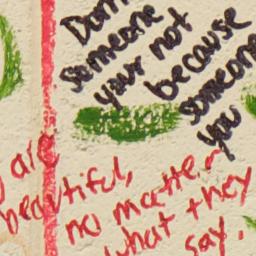 someone
your not
because
someone
you
are
beautiful,
no matter
what they
say.